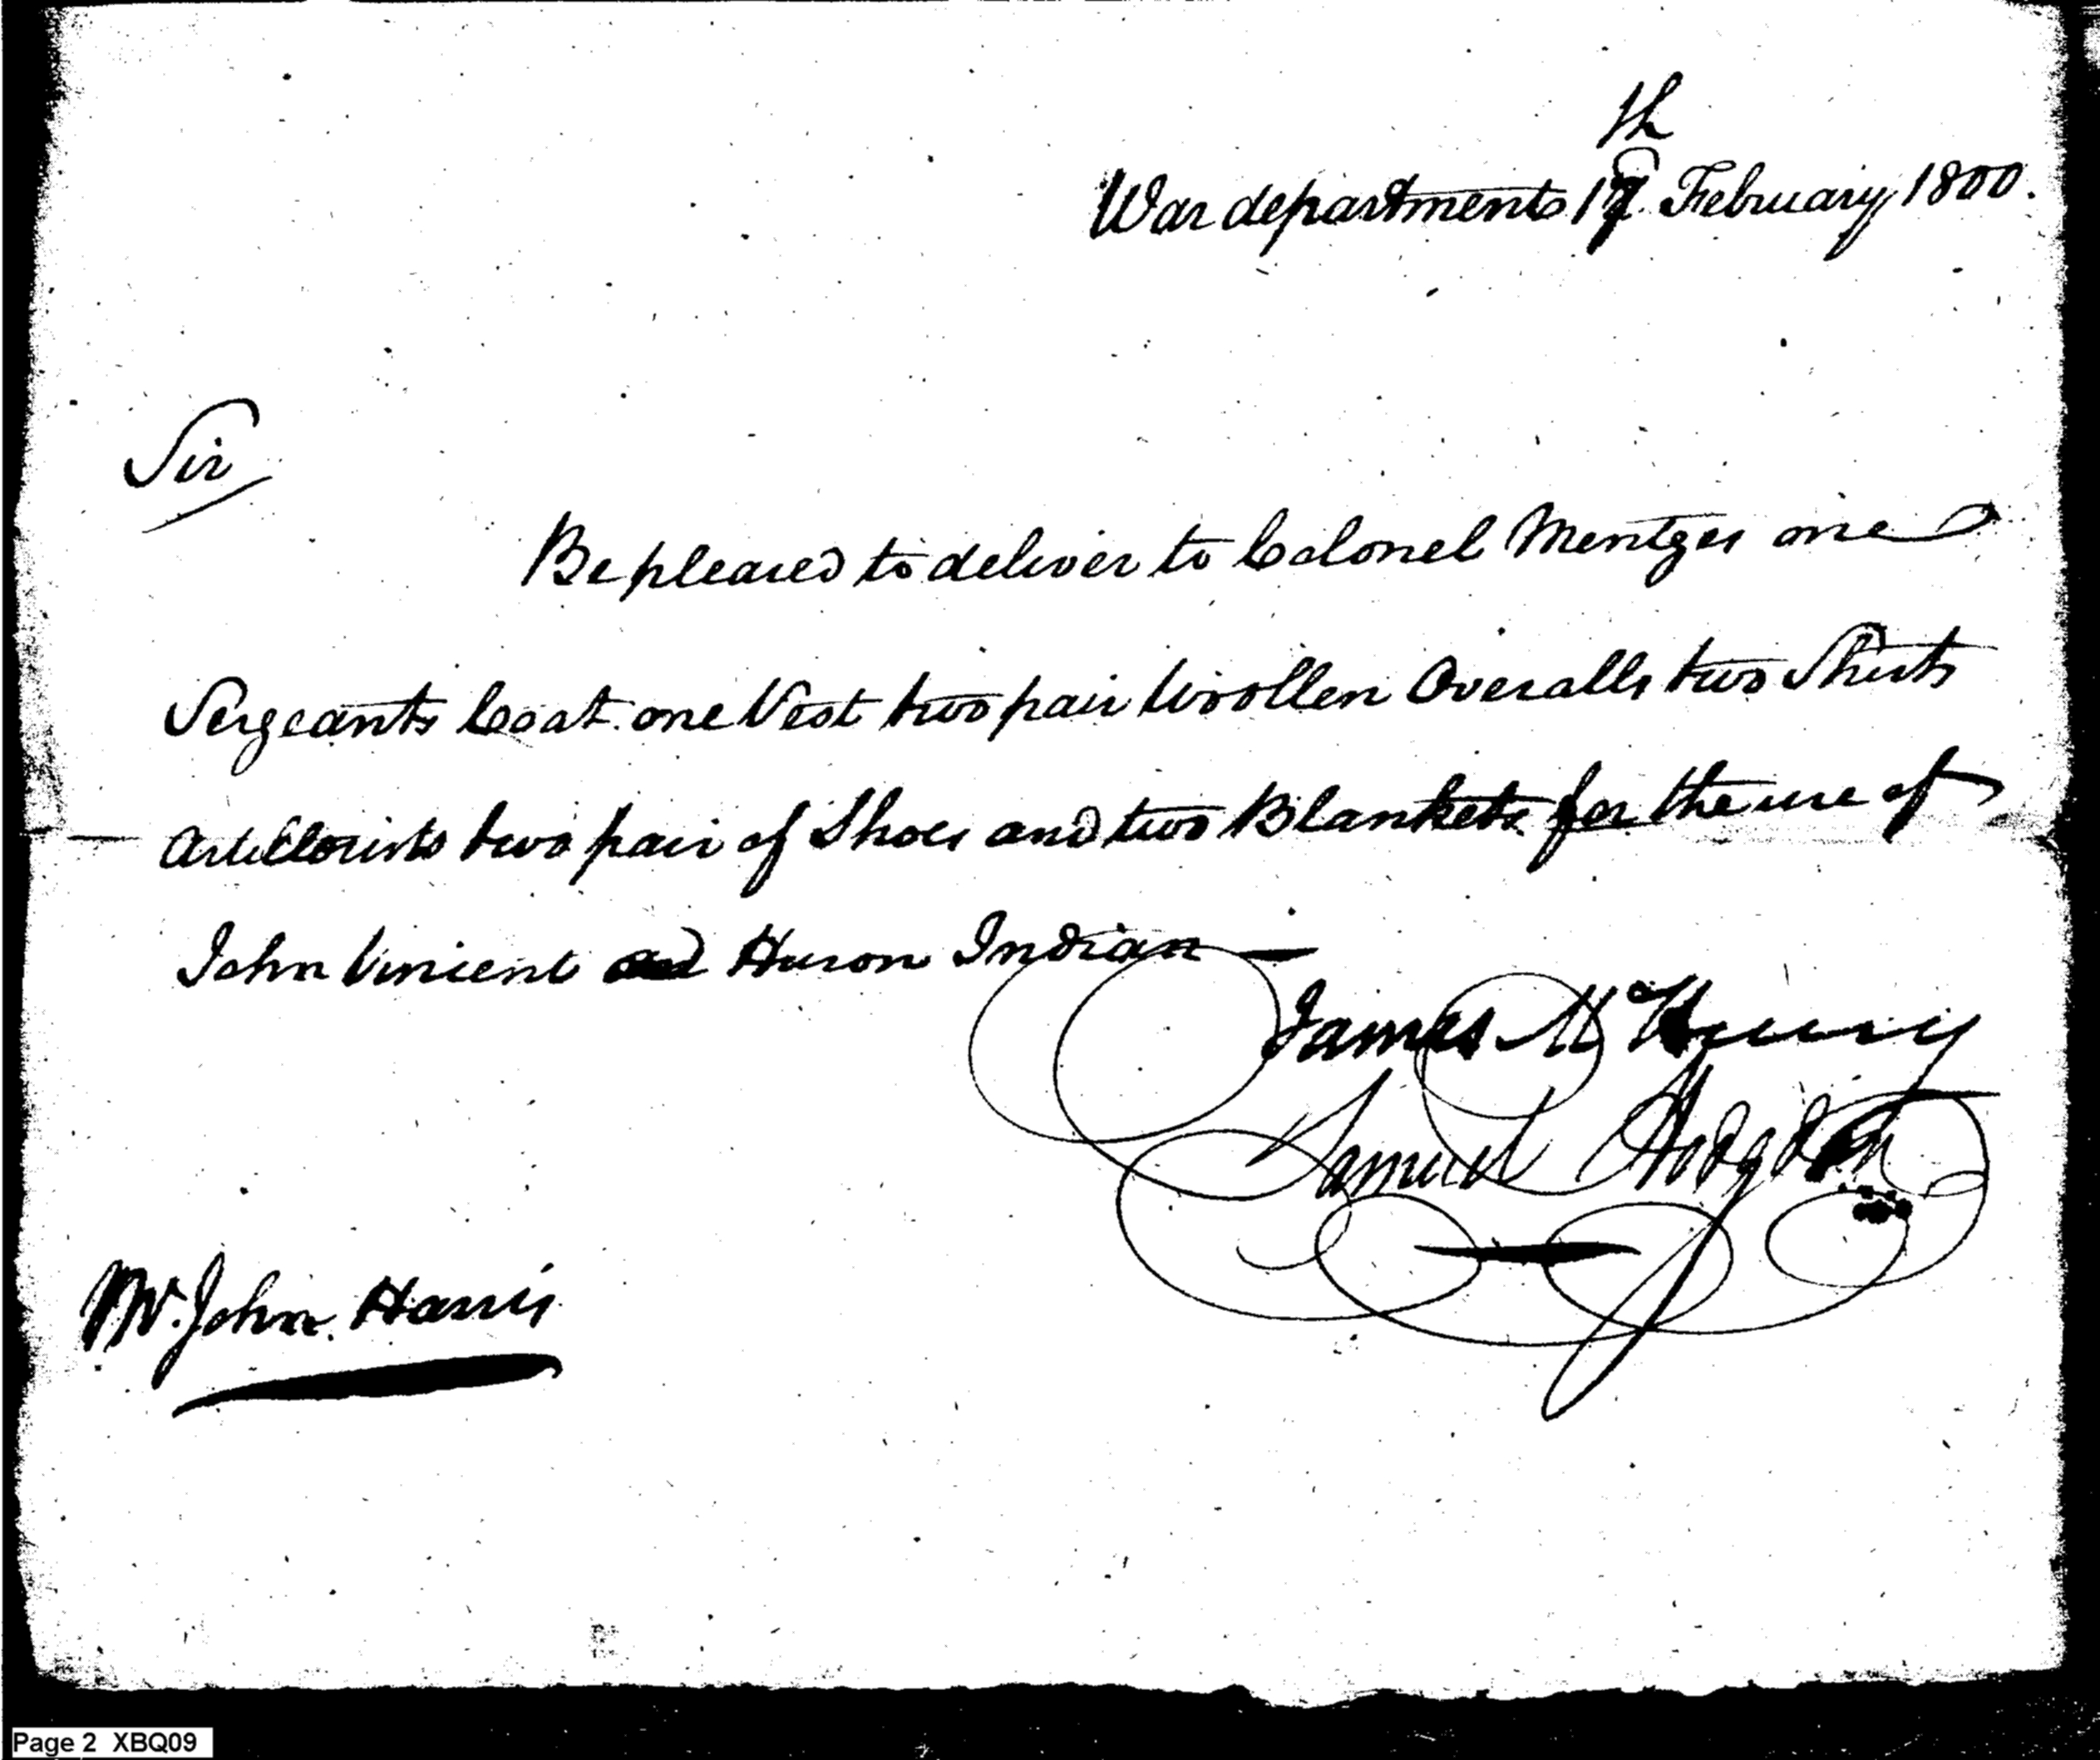 War department 17th February 1800.
Sir
Be pleased to deliver to Colonel Mentges one
Sergeants Coat one Vest two pair Woollen Overalls two Shirts
Artillerists two pair of Shoes and two Blankets for the use of
John Vincent Huron Indian —
James McHenry
Samuel Hodgdon
Mr. John Harris
Page 2 XBQ09